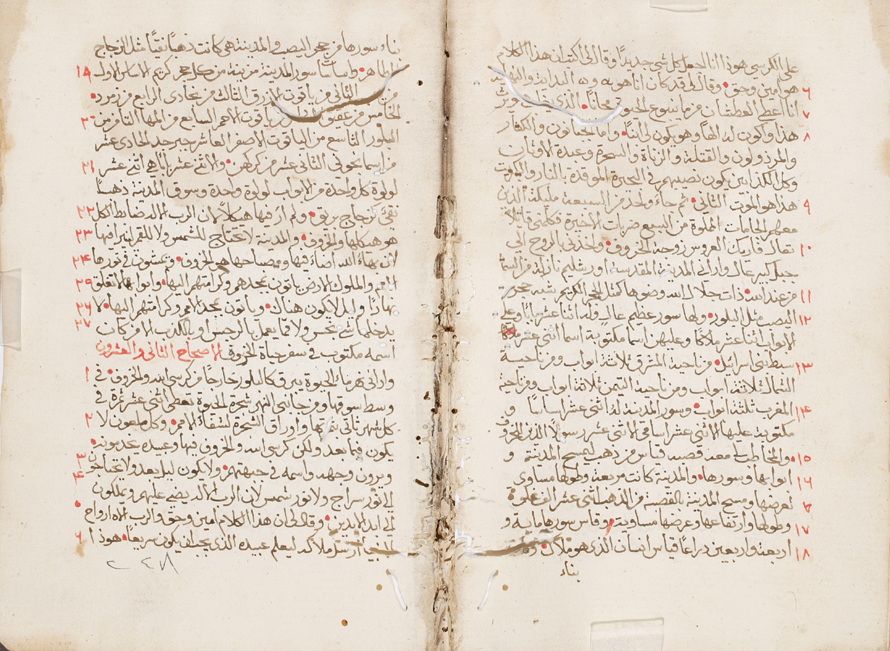 على الكرسي هوذا انا اجعل كل شي جديدا وقال لي اكتب ان هذا الكلام
هو امين وحق وقال لي قد كان انا هو وه البداية والنهاية ٦
انا اعطي العطشان من ما ينبوع الحيوة مجانا الذي يغلب يرث ٧
هذا واكون له الها وهو يكون لي ابنا واما الجبانون والكفار ٨
والمرذولون والقتلة والزناة والسحرة وعبدة الاوثان
وكل الكذابين يكون نصيبهم في البحيرة الموقدة بالنار والكبريت
هذا هو الموت الثاني ثم جاء واحد من السبعة ملايكة الذين ٩
معهم الجامات المملوة من السبع ضربات الاخيرة فكلمني قايلا
تعال فاريك العروس زوجة الخروف واخذني بالروح الى ١٠
جبل كبير عال واراني المدينة المقدسة اورشليم نازلة من السما
من عند الله ذات جلال الله وضوها كمثل الحجر الكريم شبه حجر ١١
اليصب مثل البلور ولها سور عظيم عال وله اثنا عشر بابا وعلى ١٢
الابواب اثنا عشر ملاكا وعليهن اسما مكتوبة اسما اثني عشر
سبط بني اسراييل من ناحية المشرق ثلاثة ابواب ومن ناحية ١٣
الشمال ثلاثة ابواب ومن ناحية اليمن ثلاثة ابواب ومن ناحية
المغرب ثلثة ابواب وسور المدينة له اثنا عشر اساسا و ١٤
مكتوبة عليها الاثني عشر اسما الاثني عشر رسولا الذين للخروف
والمخاطب لي معه قصبة قياس من ذهب ليمسح المدينة و ١٥
ابوابها وسورها والمدينة كانت مربعة وطولها مساوي ١٦
لعرضها ومسح المدينة بالقصبة من الذهب اثني عشر الف غلوة
وطولها وارتفاعها وعرضها مساوية وقاس سورها ماية و ١٧
اربعة واربعين دراعا قياس انسان الذي هو ملاك ١٨
بناء
بناء سورها من حجر اليصب والمدينة هي كانت ذهبا نقيا مثل الزجاج
الطاهر واساسات سور المدينة مزينة من كل حجر كريم الاساس الاول ١٩
من الثاني من ياقوت الازرق الثالث من الرابع من زمرد
الخامس من ياقوت الاحمر السابع من المها الثامن من ٢٠
البلور التاسع من الياقوت الاصفر العاشر حجر الحادي عشر
من اسمانجوني الثاني عشر من والاثنا عشر بابا هي اثنتي عشر ٢١
لولوة كل واحدة من الابواب لولوة واحدة وسوق المدينة ذهبا
نقي كزجاج بريق ولم ار فيها هيكلا لان الرب الاله ضابط الكل ٢٢
هو هيكلها والخروف والمدينة لا تحتاج للشمس ولا للقمر لينيرا فيها ٢٣
لان بهاء الله اضاء فيها ومصباحها هو الخروف ويمشون في نورها ٢٤
الامم والملوك الارض ياتون بمجدهم وكرامتهم اليها وابوابها لا تغلق ٢٥
نهارا وليل لا يكون هناك وياتون بمجد الامم وكرامتهم اليها لا ٢٦
يدخلها شي نجس ولا فاعل الرجس او بالكذب الا من كان ٢٧
اسمه مكتوب في سفر حياة الخروف الاصحاح الثاني والعشرون
واراني نهر ما الحيوة يبرق كالبلور خارجا من كرسي الله والخروف في ١
وسط سوقها ومن جانبي النهر شجرة الحيوة يعطي اثني عشر ثمرة في ٢
كل شهر تاتي بثمرها واوراق الشجرة لشفاء الامم وكل ملعون لا
يكون فيها بعد ولكن كرسي الله والخروف فيها وعبيده يخدمونه ٣
ويرون وجهه واسمه في جبهتهم ولا يكون ليل بعد ولا تحتاج ٤
الى نور سراج ولا نور شمس لان الرب الاله يضي عليهم ويملكون
الى ابد الابدين وقال لي ان هذا الكلام امين وحق والرب اله ارواح ٥
الانبيا ارسل ملاكه ليعلم عبيده الذي يجب ان يكون سريعا هوذا ٦